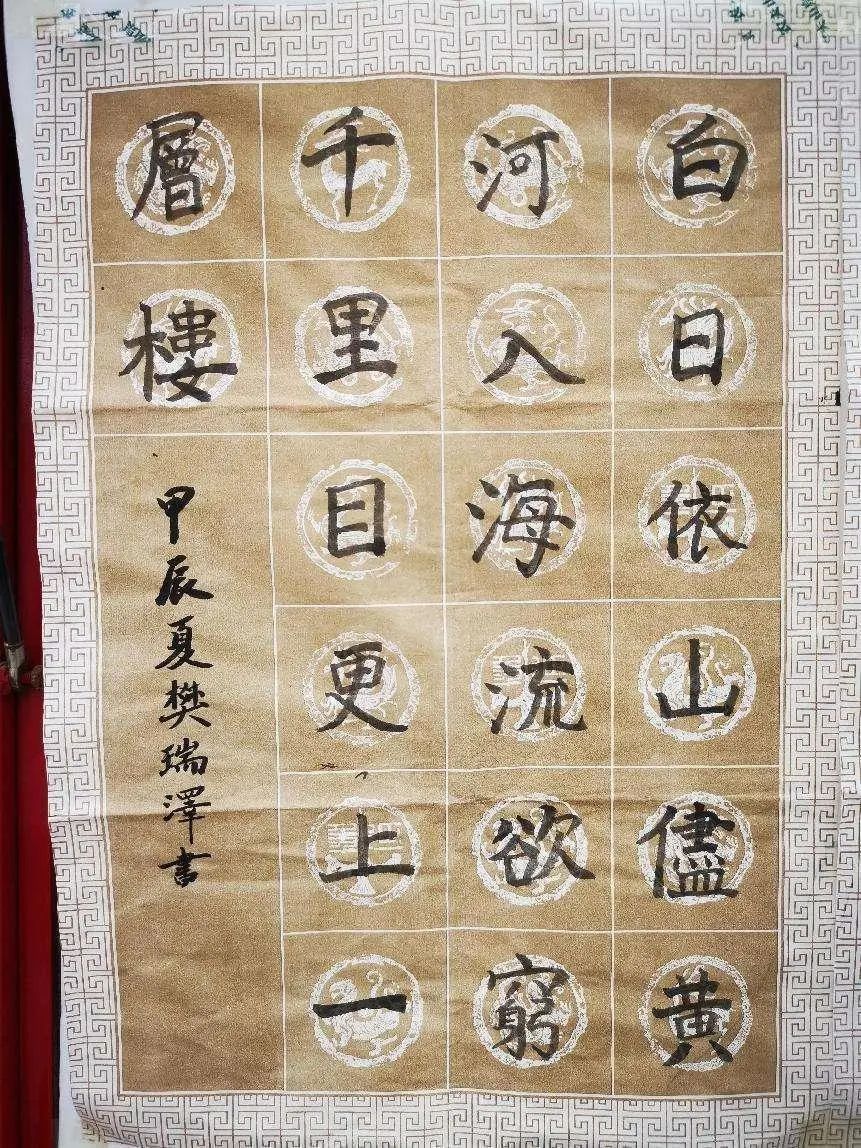 白日依山儘黄
河入海流欲窮
千里目更上一
層樓
甲辰夏樊瑞澤書